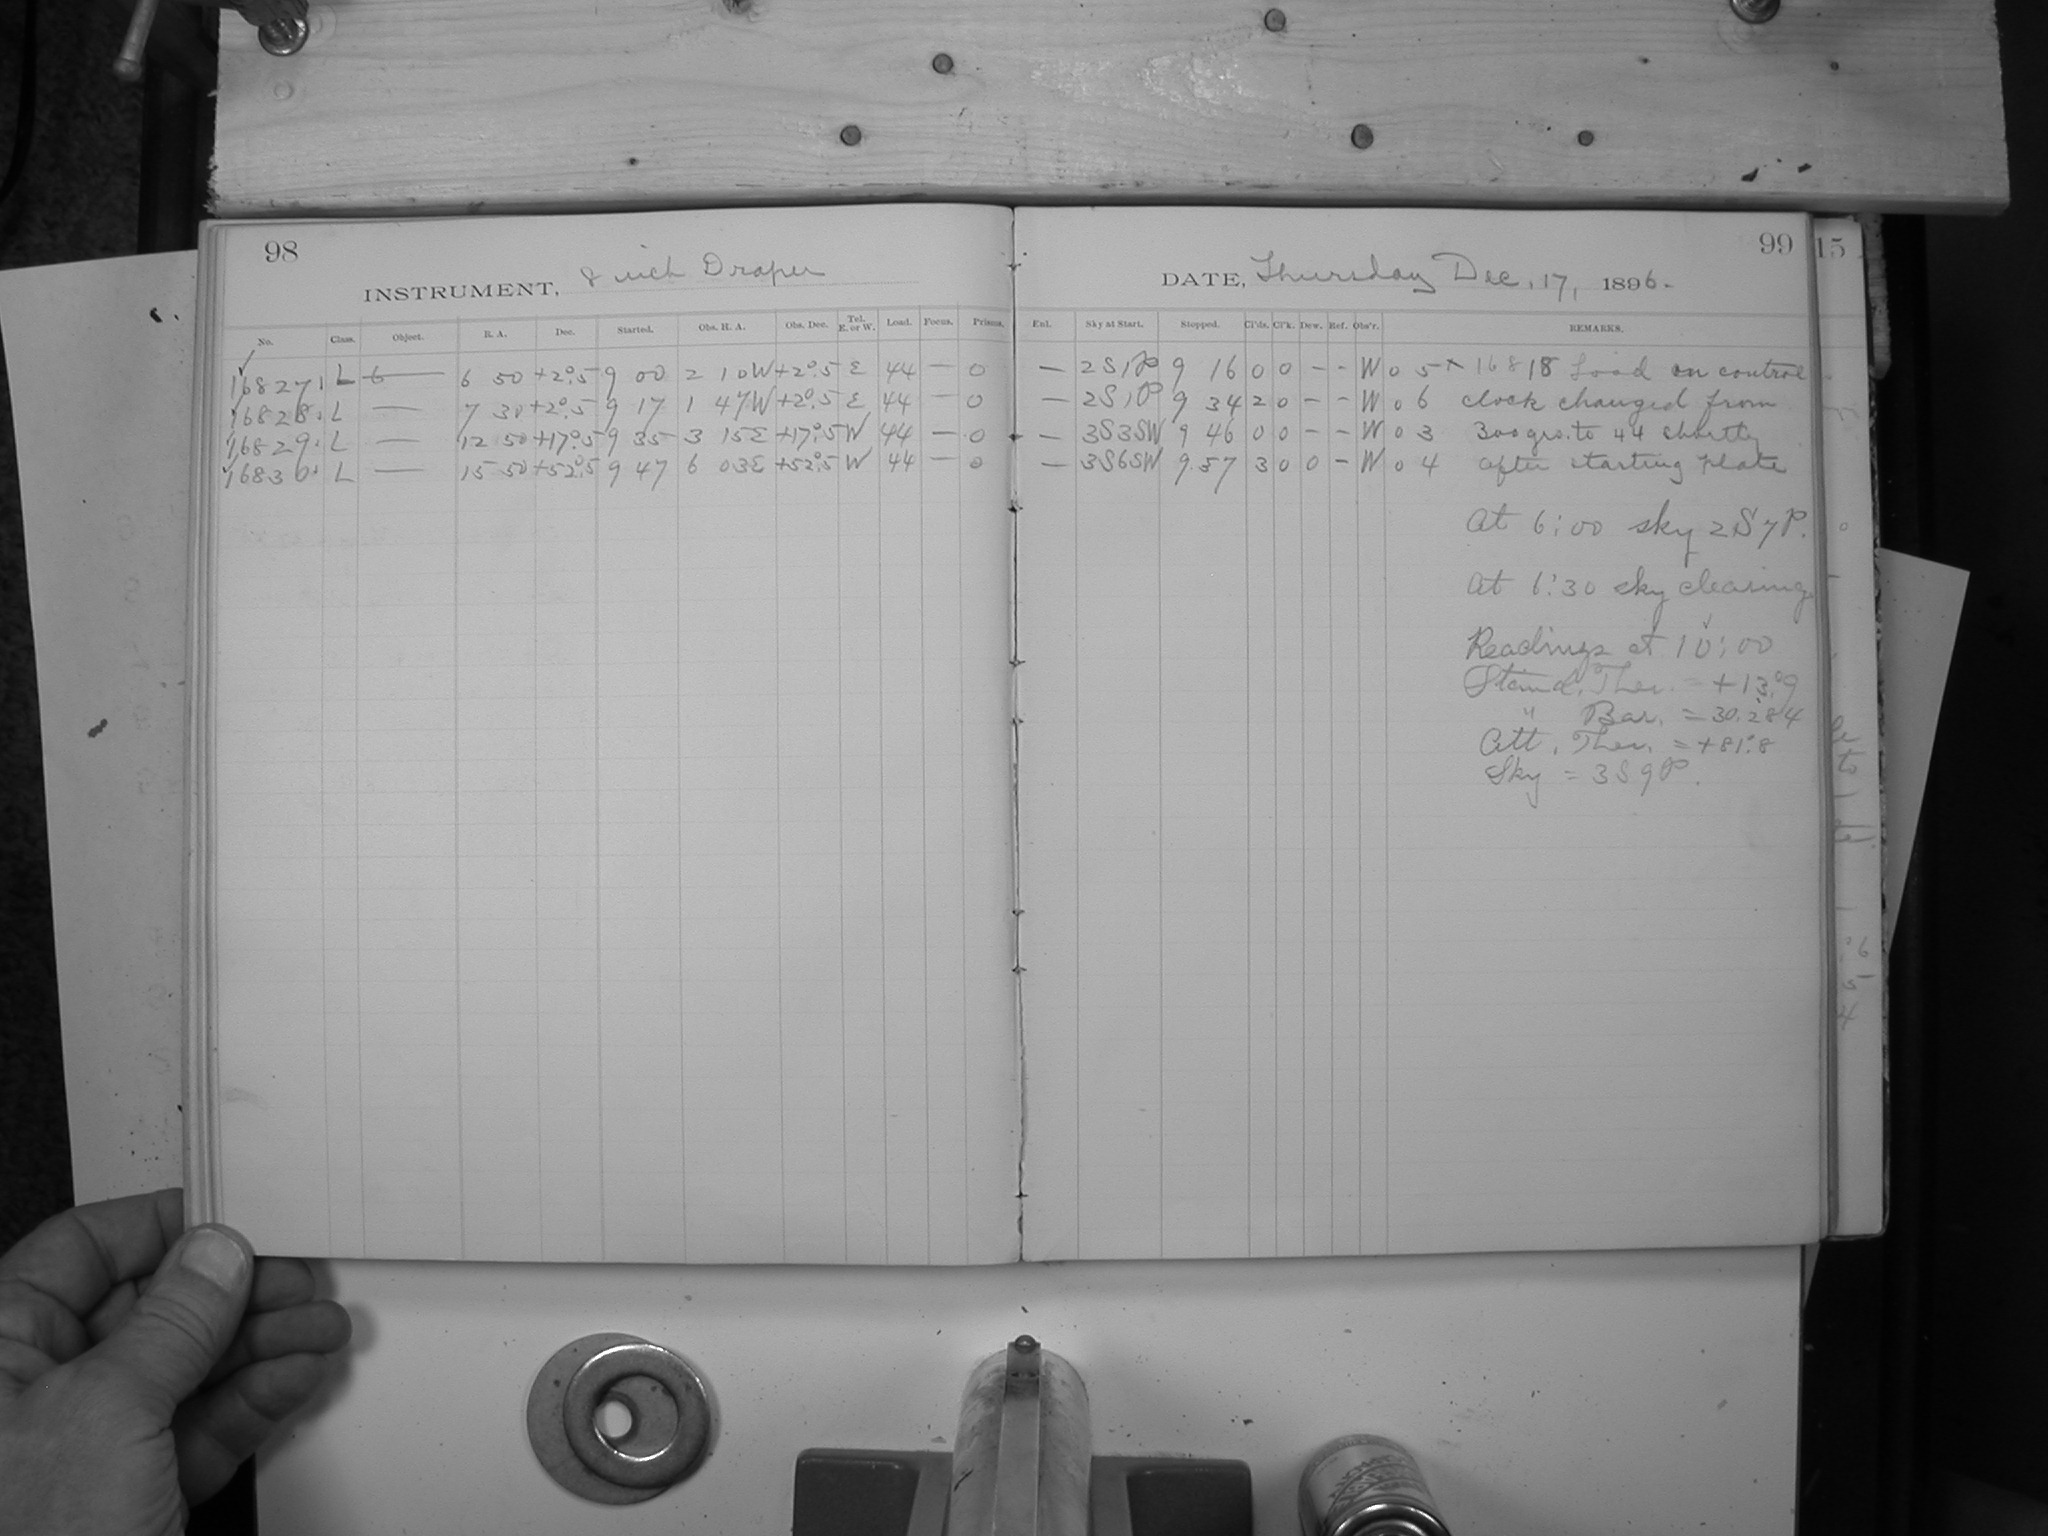 98
INSTRUMENT, 8 inch Draper
No. Class. Object. R. A. Dec. Started. Obs. H. A. Obs. Dec. Tel. E. or W. Load. Focus. Prisms.
16827 L 6 — 6 50 +2°.5 9 00 2 10W +2°.5 E 44 — 0
16828 L — 7 30 +2°.5 9 17 1 47W +2°.5 E 44 — 0
16829 L — 12 50 +17°.5 9 35 3 15E +17°.5 W 44 — 0
16830 L — 15 50 +52°.5 9 47 6 03E +52°.5 W 44 — 0
99
DATE, Thursday Dec. 17, 1896.
Enl. Sky at Start. Stopped. Cl'ds. Cl'k. Dew. Ref. Obs'r. REMARKS.
— 2S1P 9 16 0 0 - - W 0 5 × 16818 Load on control
— 2S1P 9 34 2 0 - - W 0 6 clock changed from
— 3S3SW 9 46 0 0 - - W 0 3 300 grs. to 44 shortly
— 3S6SW 9.57 3 0 0 - W 0 4 after starting plate
At 6:00 sky 2S7P.
At 6:30 sky clearing
Readings at 10:00
Stand. Ther. = +13.°9
" Bar. = 30.284
Att. Ther. = +81°.8
Sky = 3S9P.
15